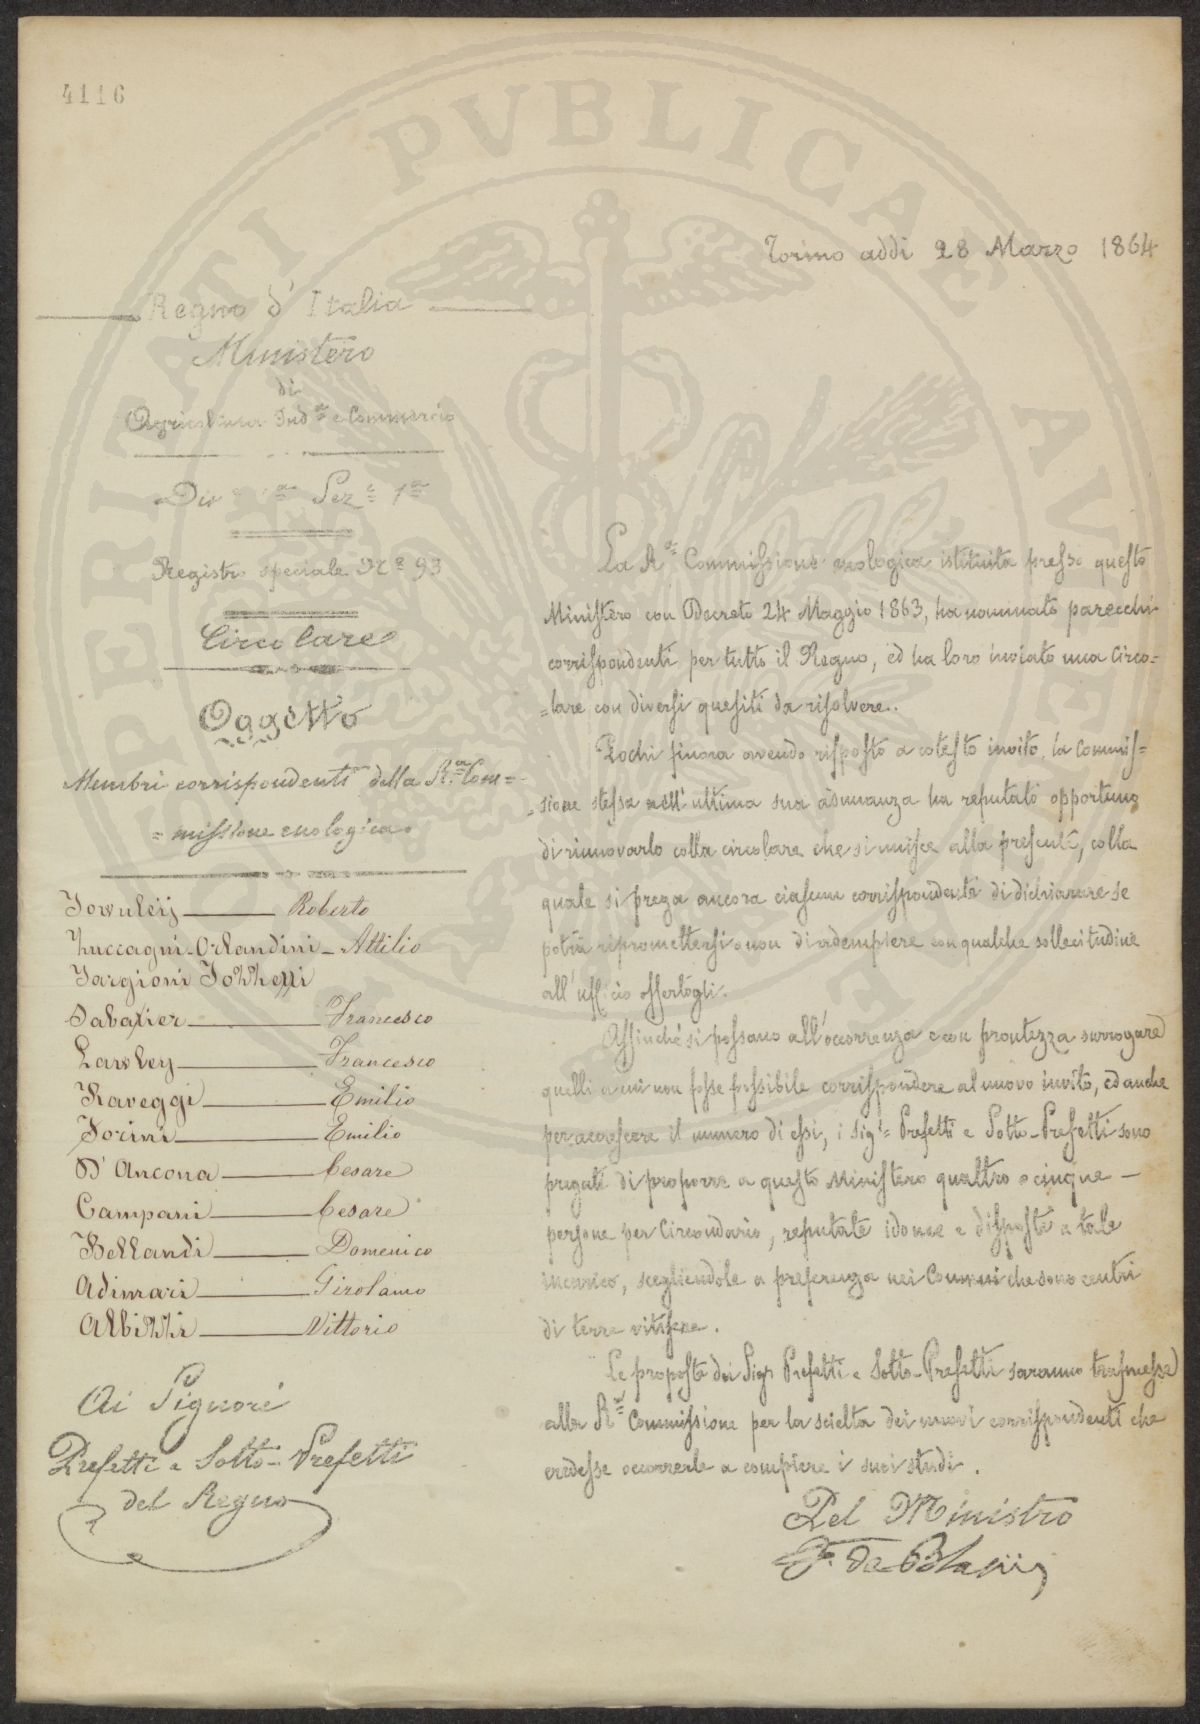 4116
PERITATI PVBLICAE AVGENDAE
Torino addì 28 Marzo 1864
Regno d'Italia
Ministero
di
Agricoltura Ind.a e Commercio
Div.e 1a Sez.e 1a
Registro speciale N.o 93
Circolare
Oggetto
Membri corrispondenti della R.a Com=
=missione enologica.
Towuleij Roberto
Zuccagni-Orlandini Attilio
Targioni Tozzetti
Sabatier Francesco
Lawley Francesco
Raveggi Emilio
Torini Emilio
D'Ancona Cesare
Campani Cesare
Bellandi Domenico
Adimari Girolamo
Albizzi Vittorio
Ai Signori
Prefetti e Sotto-Prefetti
del Regno
La R.a Commissione enologica istituita presso questo
Ministero con Decreto 24 Maggio 1863, ha nominato parecchi
corrispondenti per tutto il Regno, ed ha loro inviato una Circo=
=lare con diversi quesiti da risolvere.
Pochi finora avendo risposto a cotesto invito, la Commis=
=sione stessa nell'ultima sua adunanza ha reputato opportuno
di rinnovarlo colla circolare che si unisce alla presente, colla
quale si prega ancora ciascun corrispondente di dichiarare se
potrà ripromettersi o non di adempiere con qualche sollecitudine
all'ufficio offertogli.
Affinché si possano all'occorrenza e con prontezza surrogare
quelli a cui non fosse possibile corrispondere al nuovo invito, ed anche
per accrescere il numero di essi, i Sig.i Prefetti e Sotto-Prefetti sono
pregati di proporre a questo Ministero quattro o cinque —
persone per Circondario, reputate idonee e disposte a tale
incarico, scegliendole a preferenza nei Comuni che sono centri
di terre vitifere.
Le proposte dei Sigi Prefetti e Sotto-Prefetti saranno trasmesse
alla R.a Commissione per la scielta dei nuovi corrispondenti che
credesse occorrerle a compiere i suoi studi.
Pel Ministro
F. De Blasiis